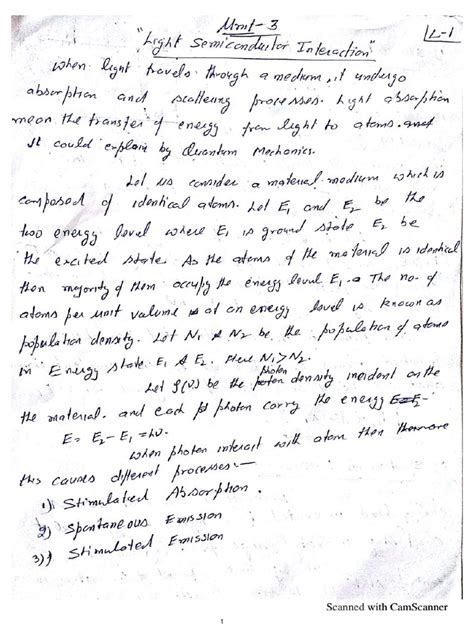 Unit-3
L-1
"Light Semiconductor Interaction"
When light travels through a medium, it undergo
absorption and scattering processes. Light absorption
mean the transfer of energy from light to atoms. and
it could explain by Quantum Mechanics.
Let us consider a material medium which is
composed of identical atoms. Let E1 and E2 be the
two energy level where E1 is ground state E2 be
the excited state. As the atoms of the material is identical
then majority of them occupy the energy level E1. The no. of
atoms per unit volume at an energy level is known as
population density. Let N1 & N2 be the population of atoms
in Energy state E1 & E2. Here N1 > N2.
Let ρ(υ) be the photon density incident on the
the material. and each photon carry the energy E=E2-
E = E2 - E1 = hυ.
When photon interact with atom then
this causes different processes:-
1) Stimulated Absorption.
2) Spontaneous Emission
3) Stimulated Emission
Scanned with CamScanner
1